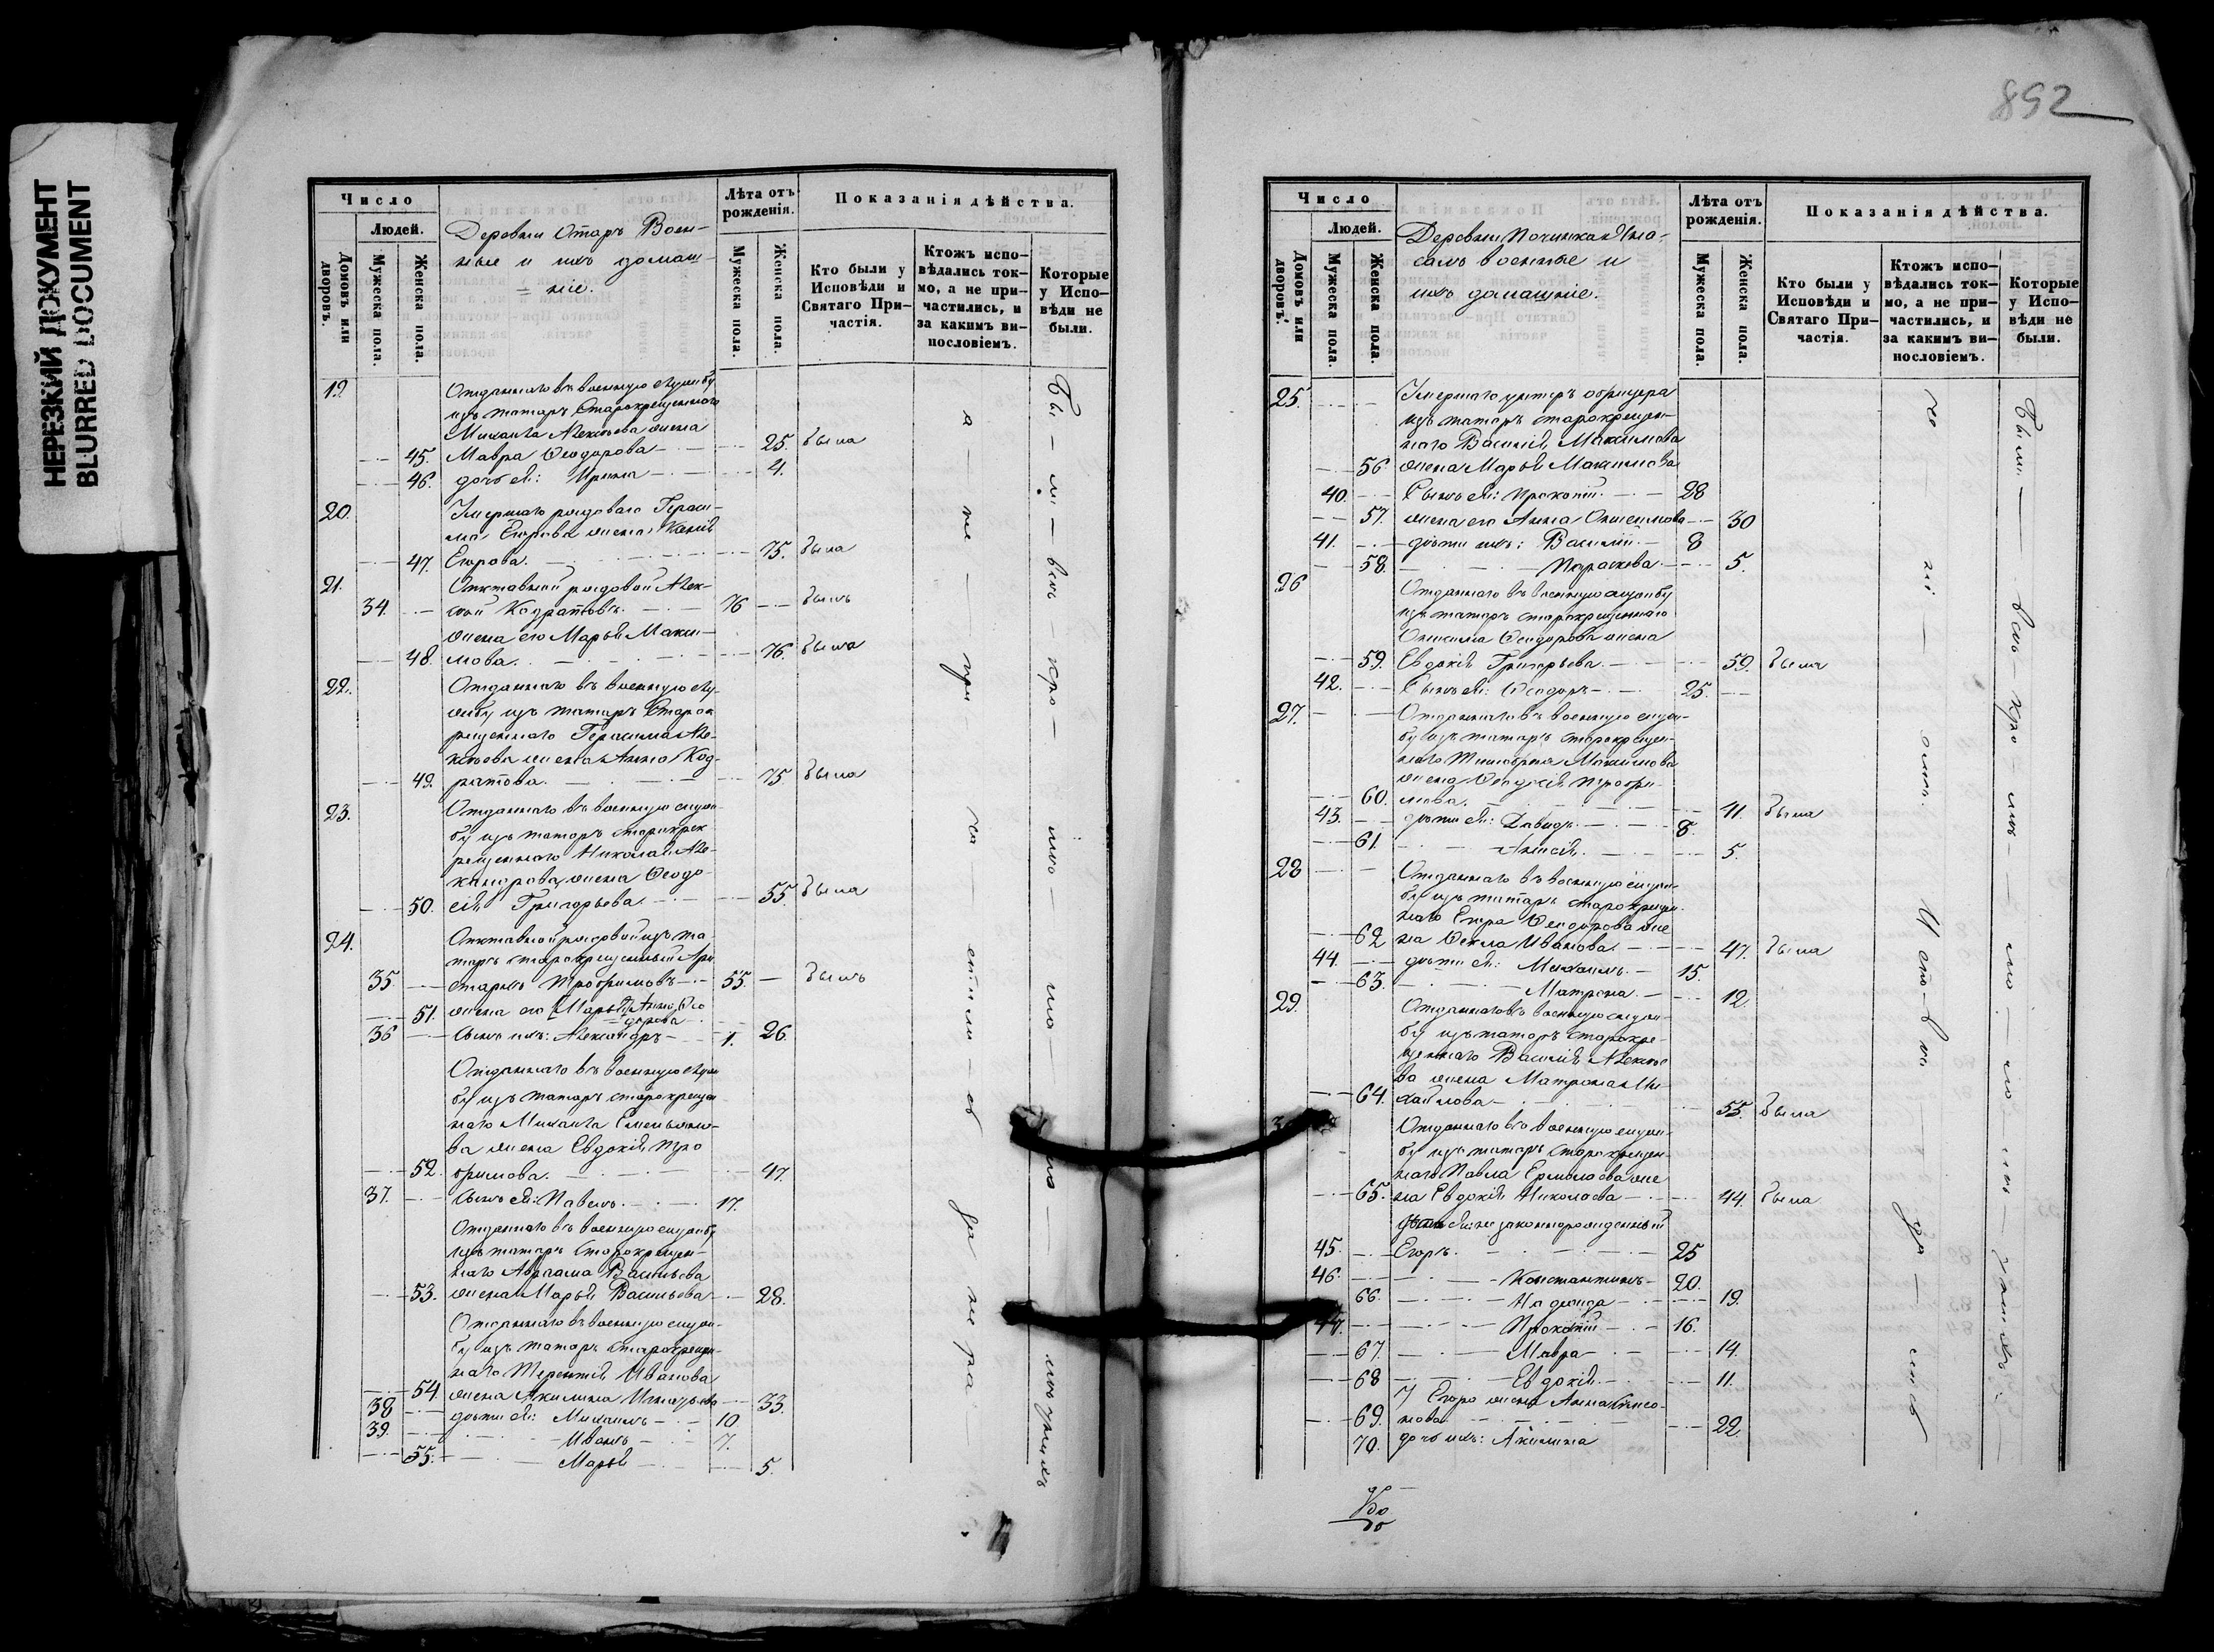 НЕРЕЗКИЙ ДОКУМЕНТ
BLURRED DOCUMENT
Число
Людей.
Домовъ или дворовъ.
Мужеска пола.
Женска пола.
Деревни Отаръ Воен-
ные и ихъ домаш-
ніе.
Лѣта отъ рожденія.
Мужеска пола.
Женска пола.
Показанія дѣйства.
Кто были у Исповѣди и Святаго При-частія.
Ктожъ испо-вѣдались ток-мо, а не при-частились, и за какимъ ви-нословіемъ.
Которые у Испо-вѣди не были.
19. Отданнаго въ военную службу
изъ татаръ Старокрещеннаго
Михаила Алексѣева жена
45. Мавра Ѳеодорова 25. была
46. дочь ея: Ирина 4.
20. Умершаго рядоваго Гераси-
ма Егорова жена
47. Егорова. 75. была
21. Отставной рядовой Алек-
34. сѣй Кодратовъ. 76 былъ
жена его Марья Макси-
48. мова. 76. была
22. Отданнаго въ военную слу-
жбу изъ татаръ Старок
рещеннаго Герасима Але-
ксѣева жена Анна Код-
49. ратова. 75 была
23. Отданнаго въ военную служ-
бу изъ татаръ старокрек
рещеннаго Николая Але-
ксандрова жена Ѳеодо-
50. сія Григорьева. 55. была
24. Отставной рядовой изъ та-
таръ старокрещенный Ари
35. стархъ Трофимовъ 55. былъ
51. жена его Марья Анна Ѳео
дорова 26.
36 сынъ ихъ: Александръ 1.
Отданнаго въ военную служ
бу изъ татаръ старокрещен
наго Михаила Емельяно-
ва жена Евдокія Тро
52. фимова. 47.
37. сынъ ея: Павелъ. 17.
Отданнаго въ военную службу
изъ татаръ старокрещен-
наго Авраама Васильева
53. жена Марья Васильева 28.
Отданнаго въ военную служ-
бу изъ татаръ старокрещен-
наго Терентія Иванова
54. жена Акилина Игнатьева 33.
38 дѣти ея: Михаилъ 10.
39. Иванъ 7.
55. Марья 5.
892
Число
Людей.
Домовъ или дворовъ.
Мужеска пола.
Женска пола.
Деревни Починка
военные и
ихъ домашніе.
Лѣта отъ рожденія.
Мужеска пола.
Женска пола.
Показанія дѣйства.
Кто были у Исповѣди и Святаго При-частія.
Ктожъ испо-вѣдались ток-мо, а не при-частились, и за какимъ ви-нословіемъ.
Которые у Испо-вѣди не были.
25. Умершаго унтеръ офицера
изъ татаръ старокрещен-
наго Василія Максимова
56 жена Марья Максимова
40. Сынъ ея: Прокопій. 28
57. жена его Анна Онисимова 30
41. дѣти ихъ: Василій. 8
58. Параскева. 5.
26 Отданнаго въ военную службу
изъ татаръ старокрещеннаго
Онисима Ѳеодорова жена
59. Евдокія Григорьева. 59. была
42. Сынъ ея: Ѳеодоръ 25.
27. Отданнаго въ военную служ-
бу изъ татаръ старокрещен-
наго Тимофея Максимова
жена Ѳеодосія Трофи-
60. мова. 41. была
43. дѣти ея: Давидъ. 8.
61. Анисія. 5.
28 Отданнаго въ военную служ-
бу изъ татаръ старокрещен-
наго Егора Ѳеодорова же
62 на Ѳекла Иванова. 47. была
44. дѣти ея: Михаилъ. 15.
63. Матрона. 12.
29. Отданнаго въ военную служ-
бу изъ татаръ старокре-
щеннаго Василія Алексѣе
ва жена Матрона Ми-
64. хайлова 55. была
Отданнаго въ военную служ-
бу изъ татаръ старокрещен-
наго Павла Ермолаева же
65. на Евдокія Николаева 44. была
дѣти ея: незаконнорожденный
45. Егоръ. 25
46. Константинъ 20.
66. Надежда 19.
47. Прокопій 16.
67. Мавра 14.
68 Евдокія. 11.
У Егора жена Анна
69. нова 22.
70. дочь ихъ: Акилина